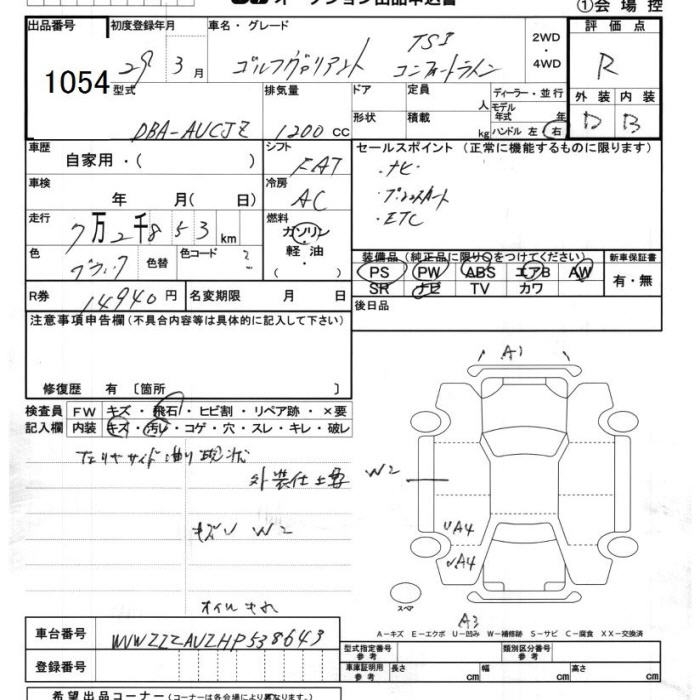 オークション出品申込書 ①会場控
出品番号 初度登録年月 車名・グレード 評価点
1054 29年 3月 ゴルフヴァリアント TSI コンフォートライン 2WD・4WD R
型式 排気量 ドア 定員 人 ディーラー・並行 外装 内装
DBA-AUCJZ 1200 CC 形状 積載 kg モデル年式 年 ハンドル 左 右 D B
車歴 自家用・( ) シフト FAT セールスポイント (正常に機能するものに限ります)
車検 年 月( 日) 冷房 AC ・ナビ
走行 7万2千853 km 燃料 ガソリン・軽油・( ) ・プッシュスタート
・ETC
色 ブラック 色替 色コード 装備品(純正品に限り○をつけてください) 新車保証書
PS PW ABS エアB AW 有・無
SR ナビ TV カワ
R券 14940円 名変期限 月 日 後日品
注意事項申告欄(不具合内容等は具体的に記入して下さい)
修復歴 有 〔箇所 〕
検査員 FW キズ・飛石・ヒビ割・リペア跡・×要
記入欄 内装 キズ・汚レ・コゲ・穴・スレ・キレ・破レ
外装仕上要
キズU W2
オイルもれ
A1
W2
UA4
UA4
スペア
A3
A-キズ E-エクボ U-凹み W-補修跡 S-サビ C-腐食 XX-交換済
車台番号 WVWZZZAUZHP538643 型式指定番号 参考 類別区分番号 参考
登録番号 車庫証明用 参考 長さ cm 幅 cm 高さ cm
希望出品コーナー(コーナーは各会場により異なります)